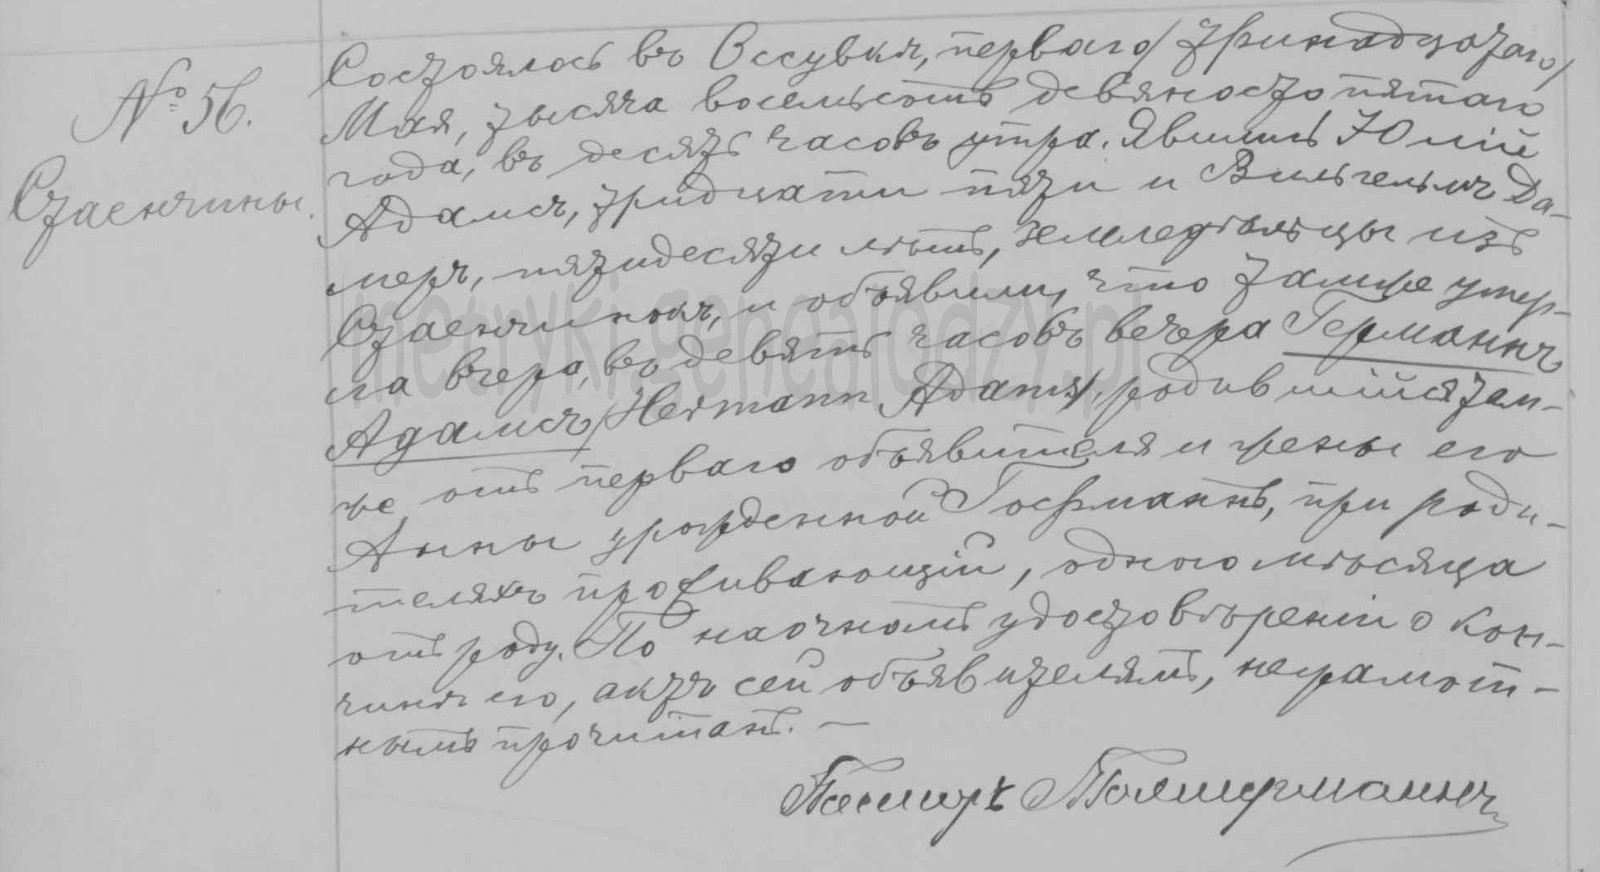 № 56.
Стаенчины.
Состоялось въ Оссувкѣ, перваго/тринадцатаго/
Мая, тысяча восемьсотъ девяносто пятаго
года, въ десять часовъ утра. Явились Юлій
Адамсъ, тридцати пяти и Вильгельмъ Да-
меръ, пятидесяти лѣтъ, земледѣльцы изъ
Стаенчинокъ, и объявили, что тамже умер-
ла вчера, въ девять часовъ вечера Германнъ
Адамсъ /Hermann Adams/, родившійся там-
же отъ перваго объявителя и жены его
Анны урожденной Гофманнъ, при роди-
теляхъ проживающій, одного мѣсяца
отъ роду. По наочномъ удостовѣреніи о кон-
чинѣ его, актъ сей объявителямъ, неграмот-
нымъ прочитанъ. —
Пасторъ
metryki.genealodzy.pl